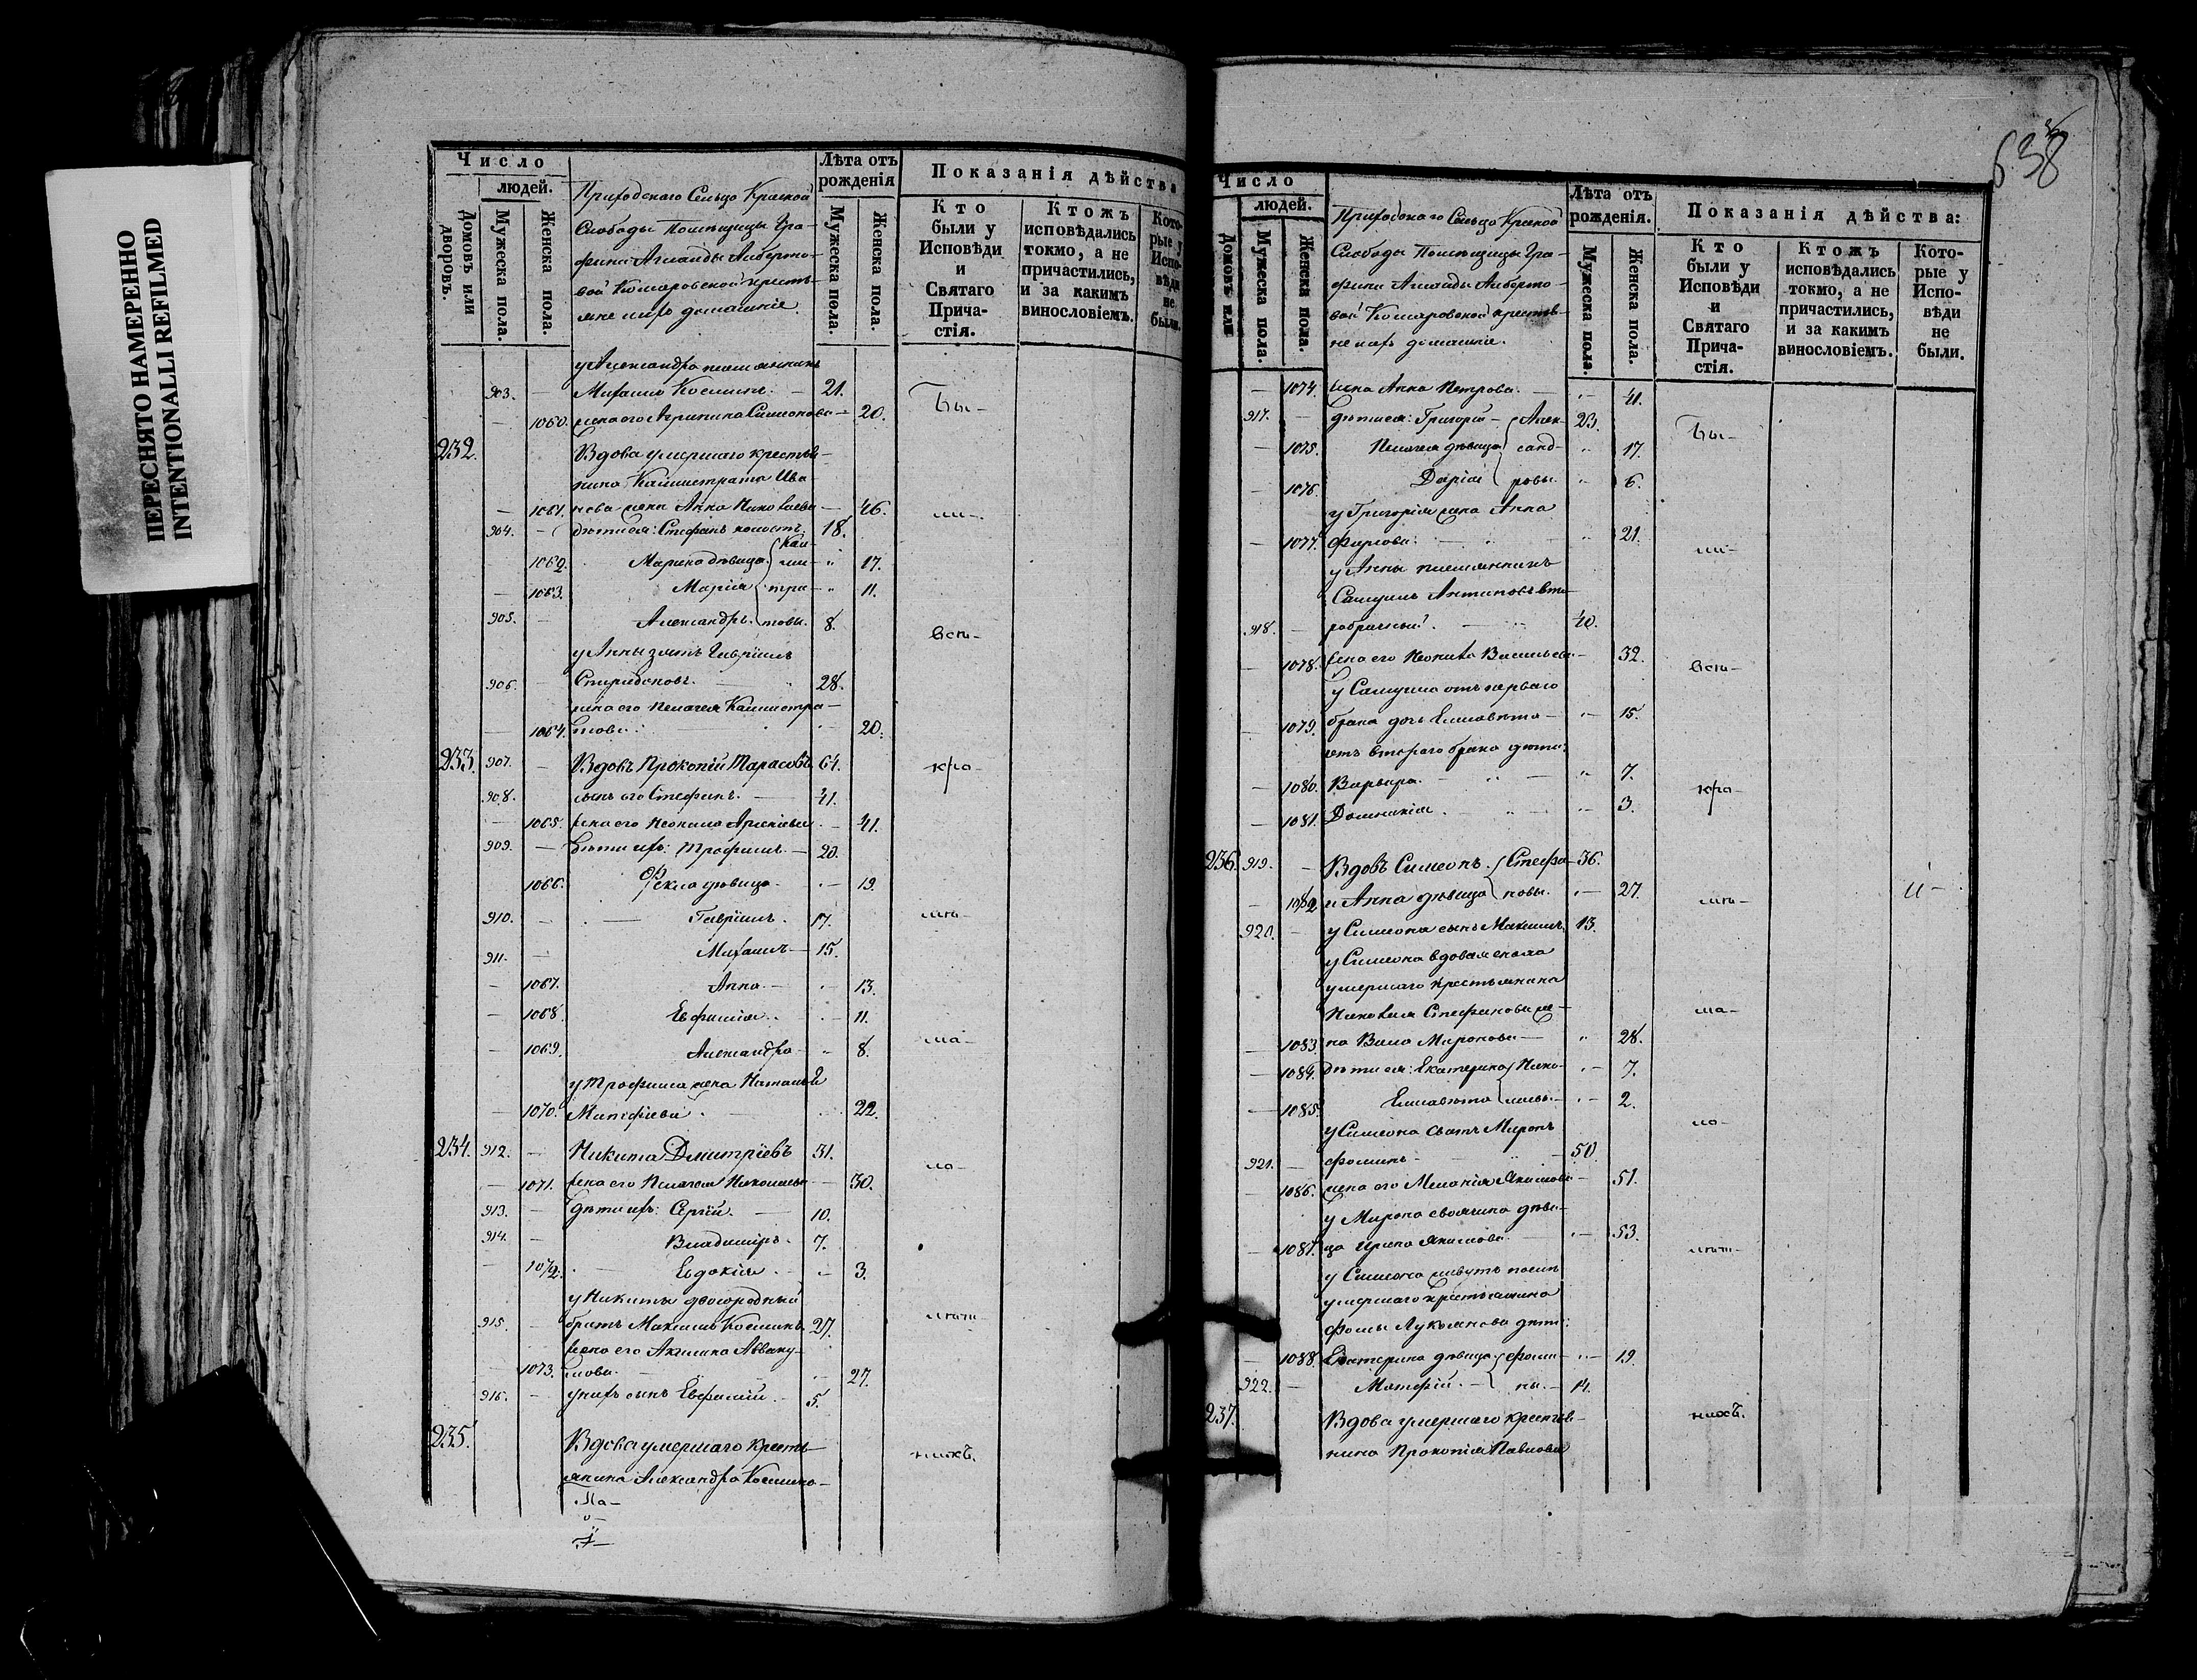 ПЕРЕСНЯТО НАМЕРЕННО
INTENTIONALLI REFILMED
638
Число
людей.
Домовъ или дворовъ.
Мужеска пола.
Женска пола.
Приходскаго Сельца Красной
Слободы Помѣщицы Гра-
фини
Комаровской крестья-
яне и ихъ домашніе
Лѣта отъ рожденія
Мужеска пола.
Женска пола.
Показанія дѣйства
Кто были у Исповѣди и Святаго Прича-стія.
Ктожъ исповѣдались токмо, а не причастились, и за какимъ винословіемъ.
Кото-рые у Испо-вѣди не были.
у Александра племянникъ
903. — Михаилъ Косминъ. — 21. Бы-
— 1060. жена его Агрипина Симеонова — 20.
232. Вдова умершаго крестья-
нина Каллистрата Ива-
— 1061. нова жена Анна Николаева — 46. ли-
904. — дѣти ея: Стефанъ холостъ 18.
1062. Марина дѣвица Кал- ли- " 17.
— 1063. Марія стра- " 11.
905. — Александръ товы. 8. всѣ-
у Анны зять Гавріилъ
906. Спиридоновъ. 28.
жена его Пелагея Каллистра-
— 1064. това. — 20.
233. 907. — Вдовъ Прокопій Тарасовъ 64. кро-
908. сынъ его Стефанъ. — 41.
— 1065. жена его Неонила — 41.
909. — дѣти ихъ: Трофимъ. — 20.
1066. Ѳекла дѣвица. — 19.
910. — Гавріилъ. 17. мѣ-
911. — Михаилъ — 15.
— 1067. Анна. — 13.
— 1068. Евфимія. — 11.
— 1069. Александра — " 8. ма-
у Трофима жена Наталья
— 1070. 22.
234. 912. — Никита Дмитріевъ 31. ло-
— 1071. жена его Пелагея Николаева — 30.
913. — дѣти ихъ: Сергій. — 10.
914. — Владиміръ. 7.
— 1072. Евдокія — 3.
у Никиты двоюродный
915. — братъ Максимъ Косминъ. 27. лѣт-
жена его Акилина Авваку-
— 1073. мова. — 27.
916. — у нихъ сынъ Евфимій. — 5.
235. Вдова умершаго кресть-
янина Александра Космина- нихъ.
Число
людей.
Домовъ или
Мужеска пола.
Женска пола.
Приходскаго Сельца Красной
Слободы Помѣщицы Гра-
фини
Комаровской крестья-
не и ихъ домашніе.
Лѣта отъ рожденія.
Мужеска пола.
Женска пола.
Показанія дѣйства:
Кто были у Исповѣди и Святаго Прича-стія.
Ктожъ исповѣдались токмо, а не причастились, и за какимъ винословіемъ.
Кото-рые у Испо-вѣди не были.
— 1074. жена Анна Петрова. — 41.
917. — дѣти ея: Григорій — Алек- 23. Бы-
— 1075. Пелагея дѣвица санд- " 17.
— 1076. Дарія ровы. " 6.
у Григорія жена Анна
— 1077. Фирсова. " 21. ли-
у Анны племянникъ
Самуилъ Антиповъ вто-
918. — робрачный. 40.
— 1078. жена его Неонила Васильева — 32. всѣ-
у Самуила отъ перваго
— 1079. брака дочь Елисавета — 15.
отъ втораго брака дѣти:
— 1080. Варвара. " 7. кро-
— 1081. Домникія. — 3.
236. 919. — Вдовъ Симеонъ. Стефа- 36.
— 1082 и Анна дѣвица новы. — 27. мѣ- И-
920. — у Симеона сынъ Максимъ. 13.
у Симеона вдовая сноха
умершаго крестьянина
Николая Стефанова же- ма-
— 1083. на Васса Миронова — " 28.
— 1084. дѣти ея: Екатерина Нико- — 7.
— 1085. Елисавета лаевы. — 2.
у Симеона сватъ Миронъ ло-
921. — Фоминъ — 50.
— 1086. жена его Меланія Якимова — 51.
у Мирона своячина дѣви-
— 1087. ца Ирина Якимова. — 53. лѣт-
у Симеона живутъ послѣ
умершаго крестьянина
Фомы Лукьянова дѣти:
— 1088. Екатерина дѣвица Фоми- — 19.
922. — Матфій. — ны. — 14.
237. Вдова умершаго крестья- нихъ.
нина Прокопія Павлова